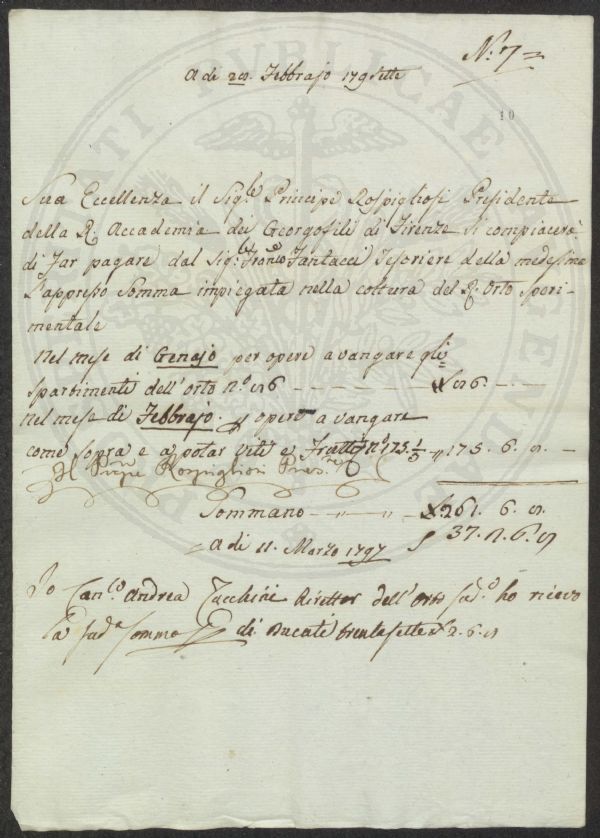 N.° 7 =
A di 28. Febbrajo 179sette
10
Sua Eccellenza il Sig.re Principe Rospigliosi Presidente
della R. Accademia dei Georgofili di Firenze si compiacerà
di far pagare dal Sig.re Franc.o Fantacci Tesoriere della medesima
l'appresso somma impiegata nella coltura del R. Orto speri-
mentale
Nel mese di Genajo per opere a vangare gli
spartimenti dell'orto n.°
nel mese di Febbrajo. opere a vangare
come sopra e a potar viti e Frutti n.° 175. 1/3 175. 6. 8. —
Il Prin.pe Rospigliosi Pres.te
Sommano 261. 6. 8.
37. 2. 6. 8
= A di 11. Marzo 1797
Io Can.co Andrea Zucchini Diretter dell'Orto sud.o ho ricevo
la sud.a somma di Ducati trentasette 2. 6. 8